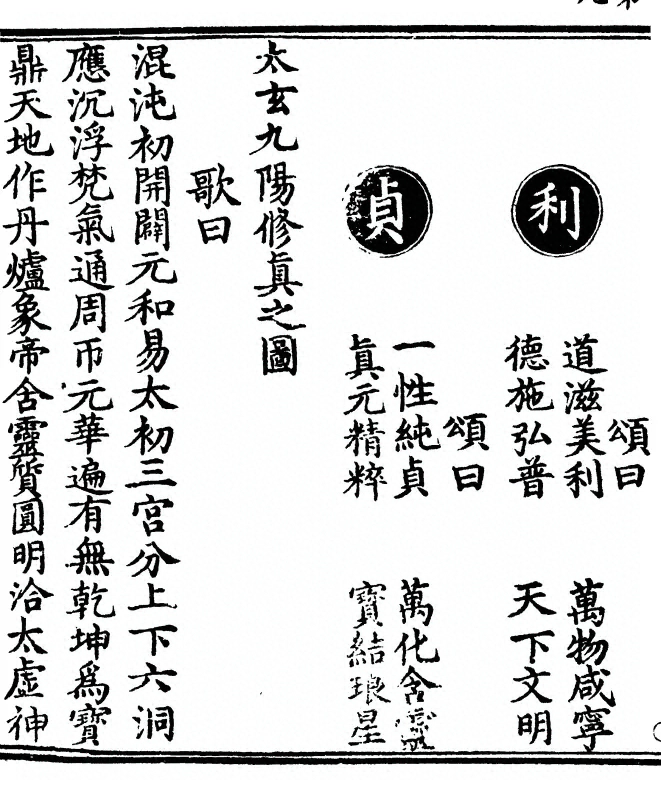 頌曰
道滋美利 萬物咸寧
德施弘普 天下文明
利
頌曰
一性純貞 萬化含靈
眞元精粹 寶結琅星
貞
太玄九陽修眞之圖
歌曰
混沌初開闢元和易太初三宮分上下六洞
應沉浮梵氣通周帀元華遍有無乾坤爲寶
鼎天地作丹爐象帝含靈質圓明洽太虛神